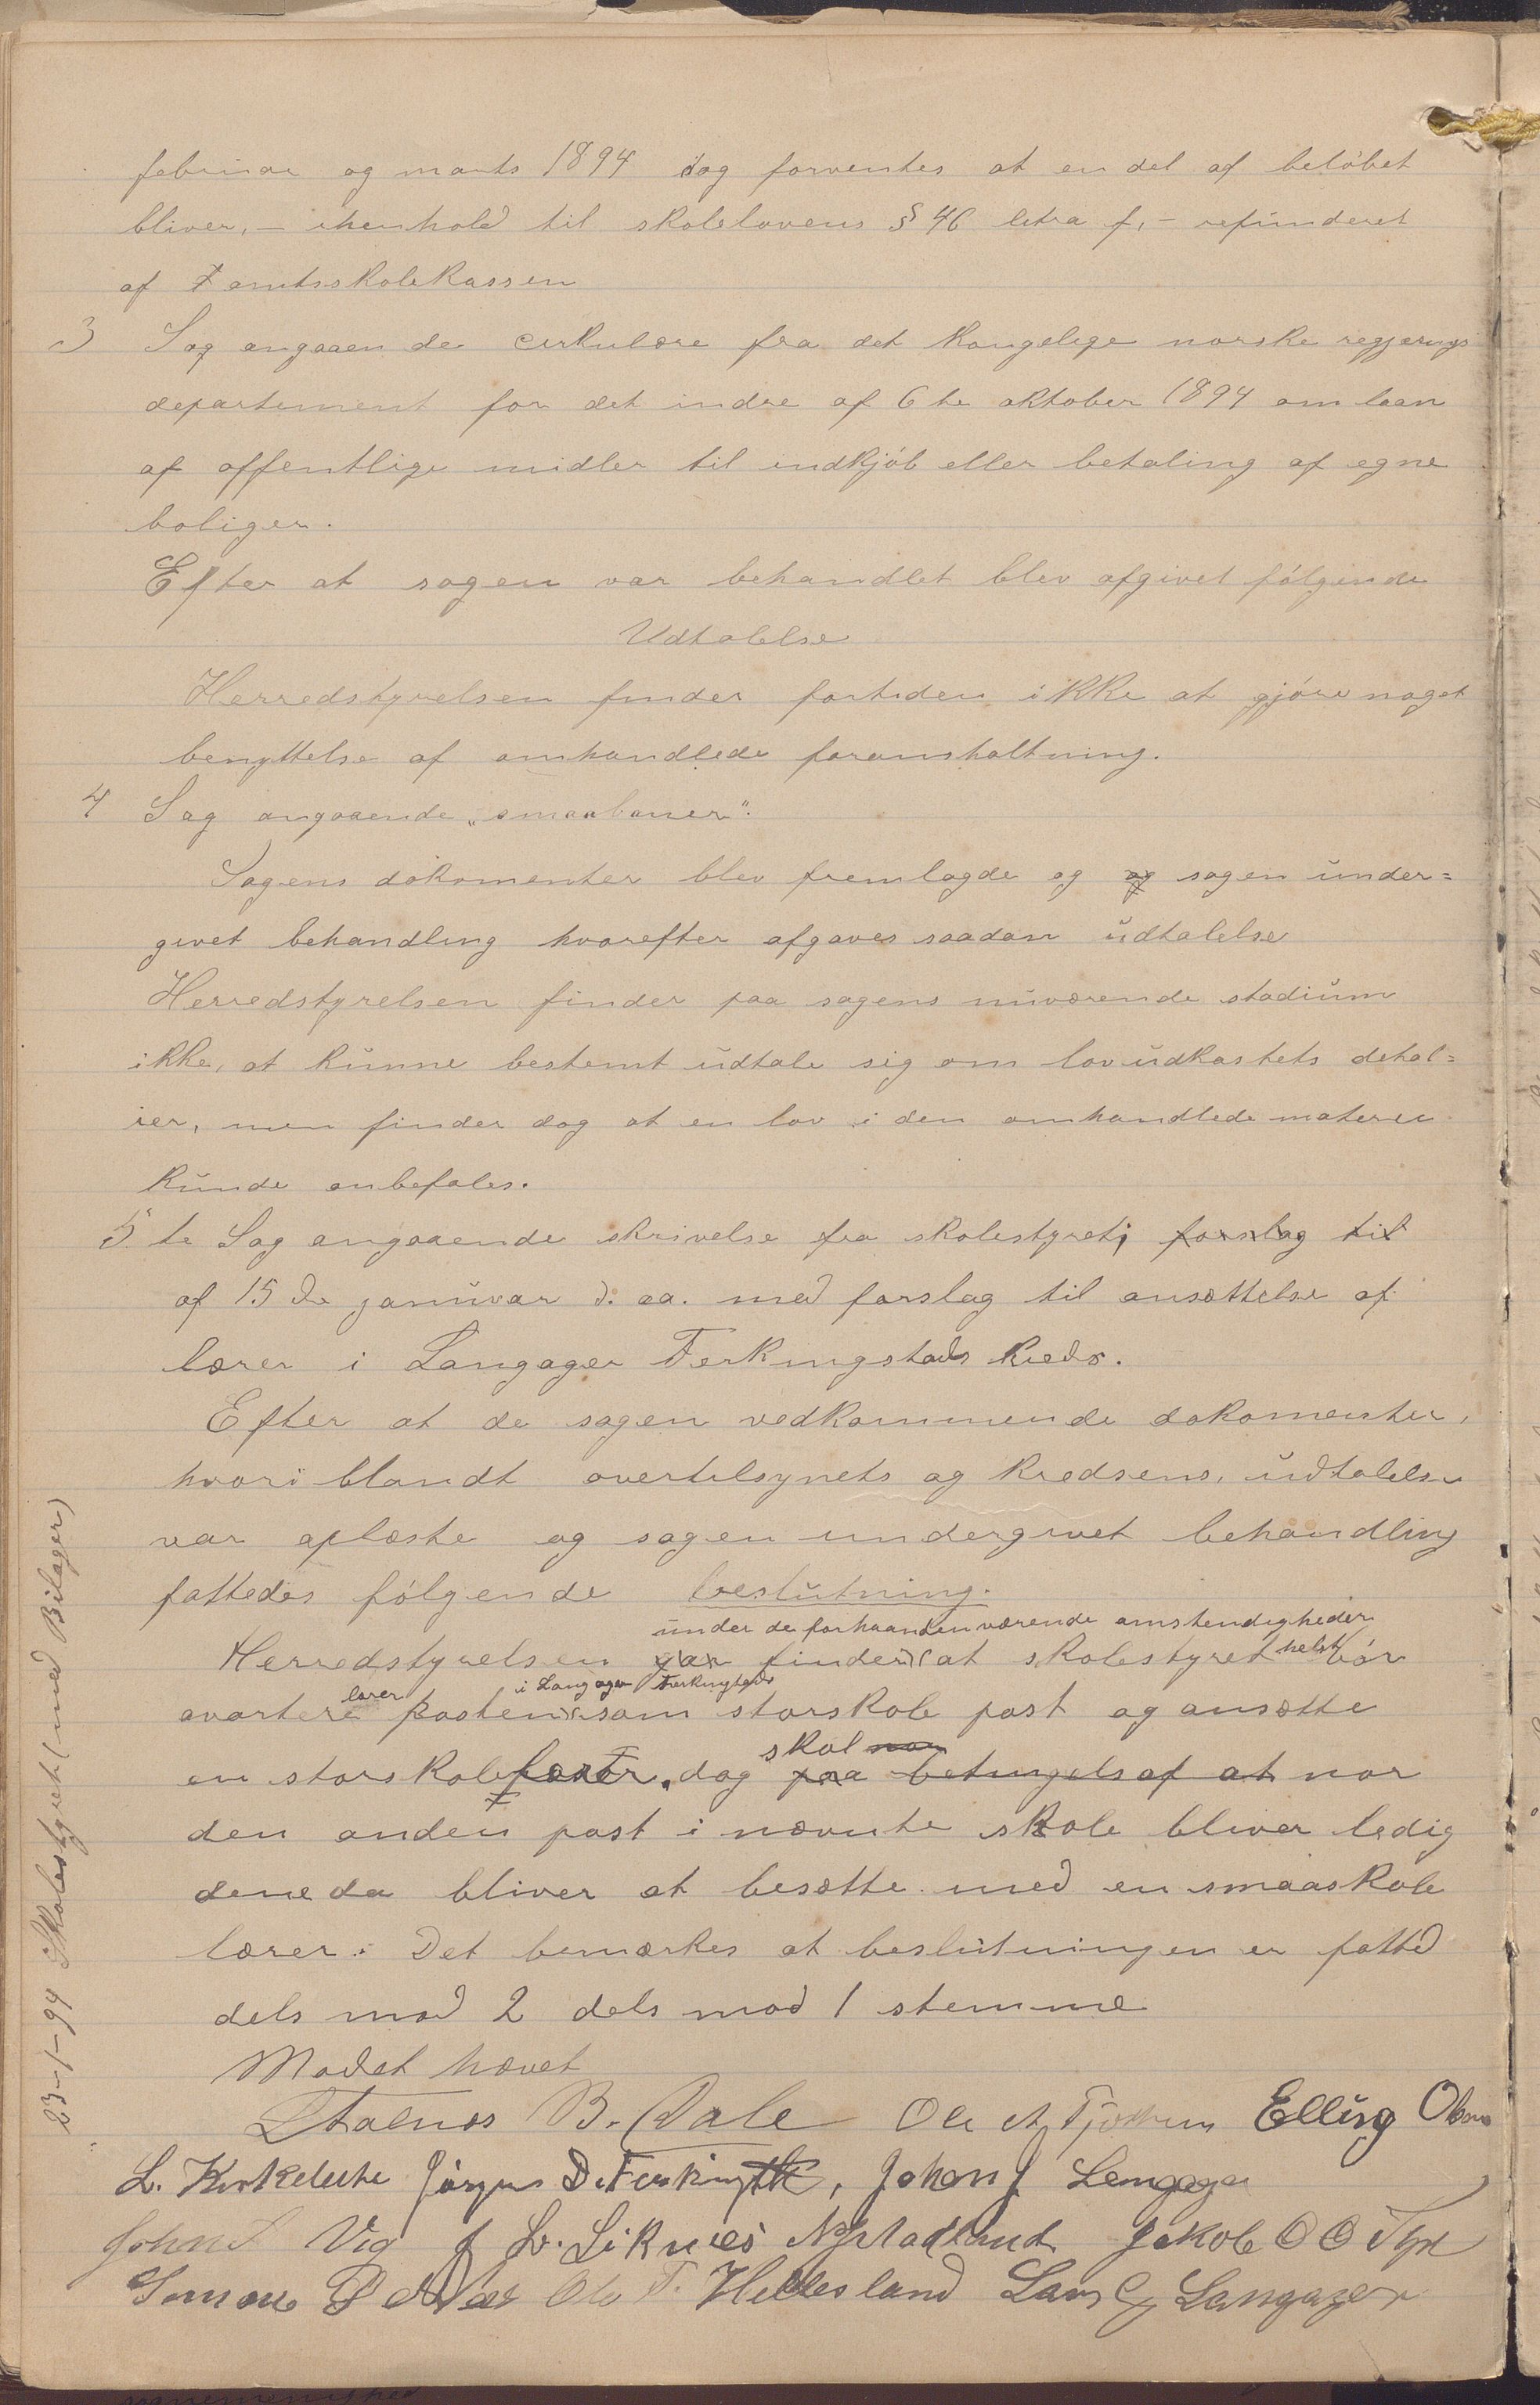 februar og marts 1894 dog forventes at en del af beløbet
bliver, – ihenhold til skolelovens § 46 litra f, – refunderet
af amtsskolekassen
3 Sag angaaende cirkulære fra det kongelige norske regjerings
departement for det indre af 6te oktober 1894 om laan
af offentlige midler til indkjøb eller betaling af egne
boliger.
Efter at sagen var behandlet blev afgivet følgende
Udtalelse
Herredstyrelsen finder fortiden ikke at gjøre noget
benyttelse af omhandlede foranstaltning.
4 Sag angaaende „smaabaner".
Sagens dokomenter blev fremlagde og og sagen under=
givet behandling hvorefter afgaves saadan udtalelse
Herredstyrelsen finder paa sagens nuværende stadium
ikke, at kunne bestemt udtale sig om lovudkastets detal=
ier, men finder dog at en lov i den omhandlede materie
kunde anbefales.
5.te Sag angaaende skrivelse fra skolestyret, forslag til
af 15de januvar d. aa. med forslag til ansættelse af
lærer i Langager Ferkingstads kreds.
Efter at de sagen vedkommende dokomenter,
hvoriblandt overtilsynets og kredsens, udtalelse
var oplæste og sagen undergivet behandling
fattedes følgende beslutning.
under de forhaandenværende omstendigheder
Herredstyrelsen finder at skolestyret helst bør
lærer i Langager Ferkingstad
avertere posten som storskole post og ansætte
skal
en storskolelærer. dog paa betingelse af at nor
den anden post i nævnte skole bliver ledig
dene da bliver at besætte med en smaaskole
lærer. Det bemærkes at beslutningen er fatted
dels mod 2 dels mod 1 stemme
Mødet hævet
B. Dale Ole Elling
L. Jørgen D. Johan J Langager
John Vig J L. Liknes Jakob O O
Simon Ole T. Hellesland Lars G Langager
23–1–94 Skolestyret (med Bilager)